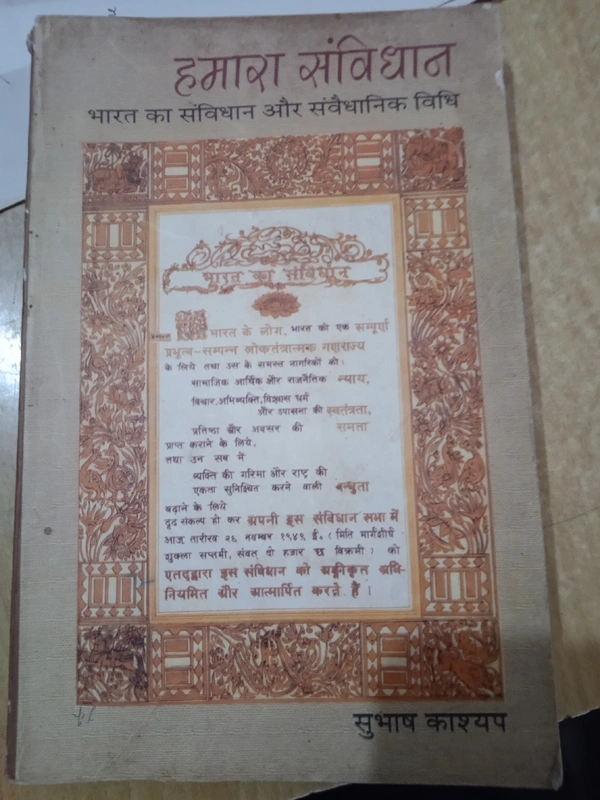 हमारा संविधान
भारत का संविधान और संवैधानिक विधि
भारत का संविधान
हम भारत के लोग, भारत को एक सम्पूर्ण
प्रभुत्व-सम्पन्न लोकतंत्रात्मक गणराज्य
के लिये तथा उस के समस्त नागरिकों को:
सामाजिक आर्थिक और राजनैतिक न्याय,
विचार, अभिव्यक्ति, विश्वास धर्म
और उपासना की स्वतंत्रता,
प्रतिष्ठा और अवसर की समता
प्राप्त कराने के लिये,
तथा उन सब में
व्यक्ति की गरिमा और राष्ट्र की
एकता सुनिश्चित करने वाली बन्धुता
बढ़ाने के लिये
दृढ़ संकल्प हो कर अपनी इस संविधान सभा में
आज तारीख २६ नवम्बर १९४९ ई० (मिति मार्गशीर्ष
शुक्ला सप्तमी, संवत् दो हजार छ विक्रमी) को
एतद्द्वारा इस संविधान को अङ्गीकृत अधि-
नियमित और आत्मार्पित करते हैं।
सुभाष काश्यप